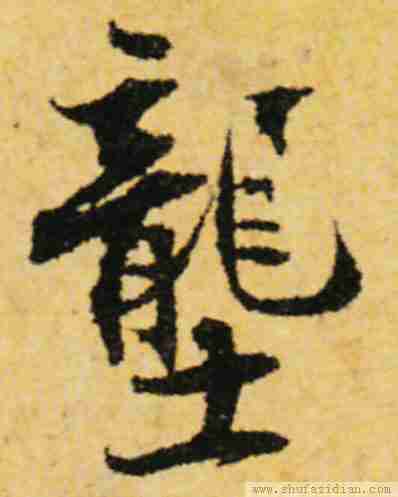 壟
www.shufazidian.com